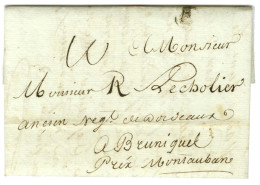 A Monsieur
Monsieur R Lecholier
ancien Regt. de Bordeaux
A Bruniquel
Prix Montauban